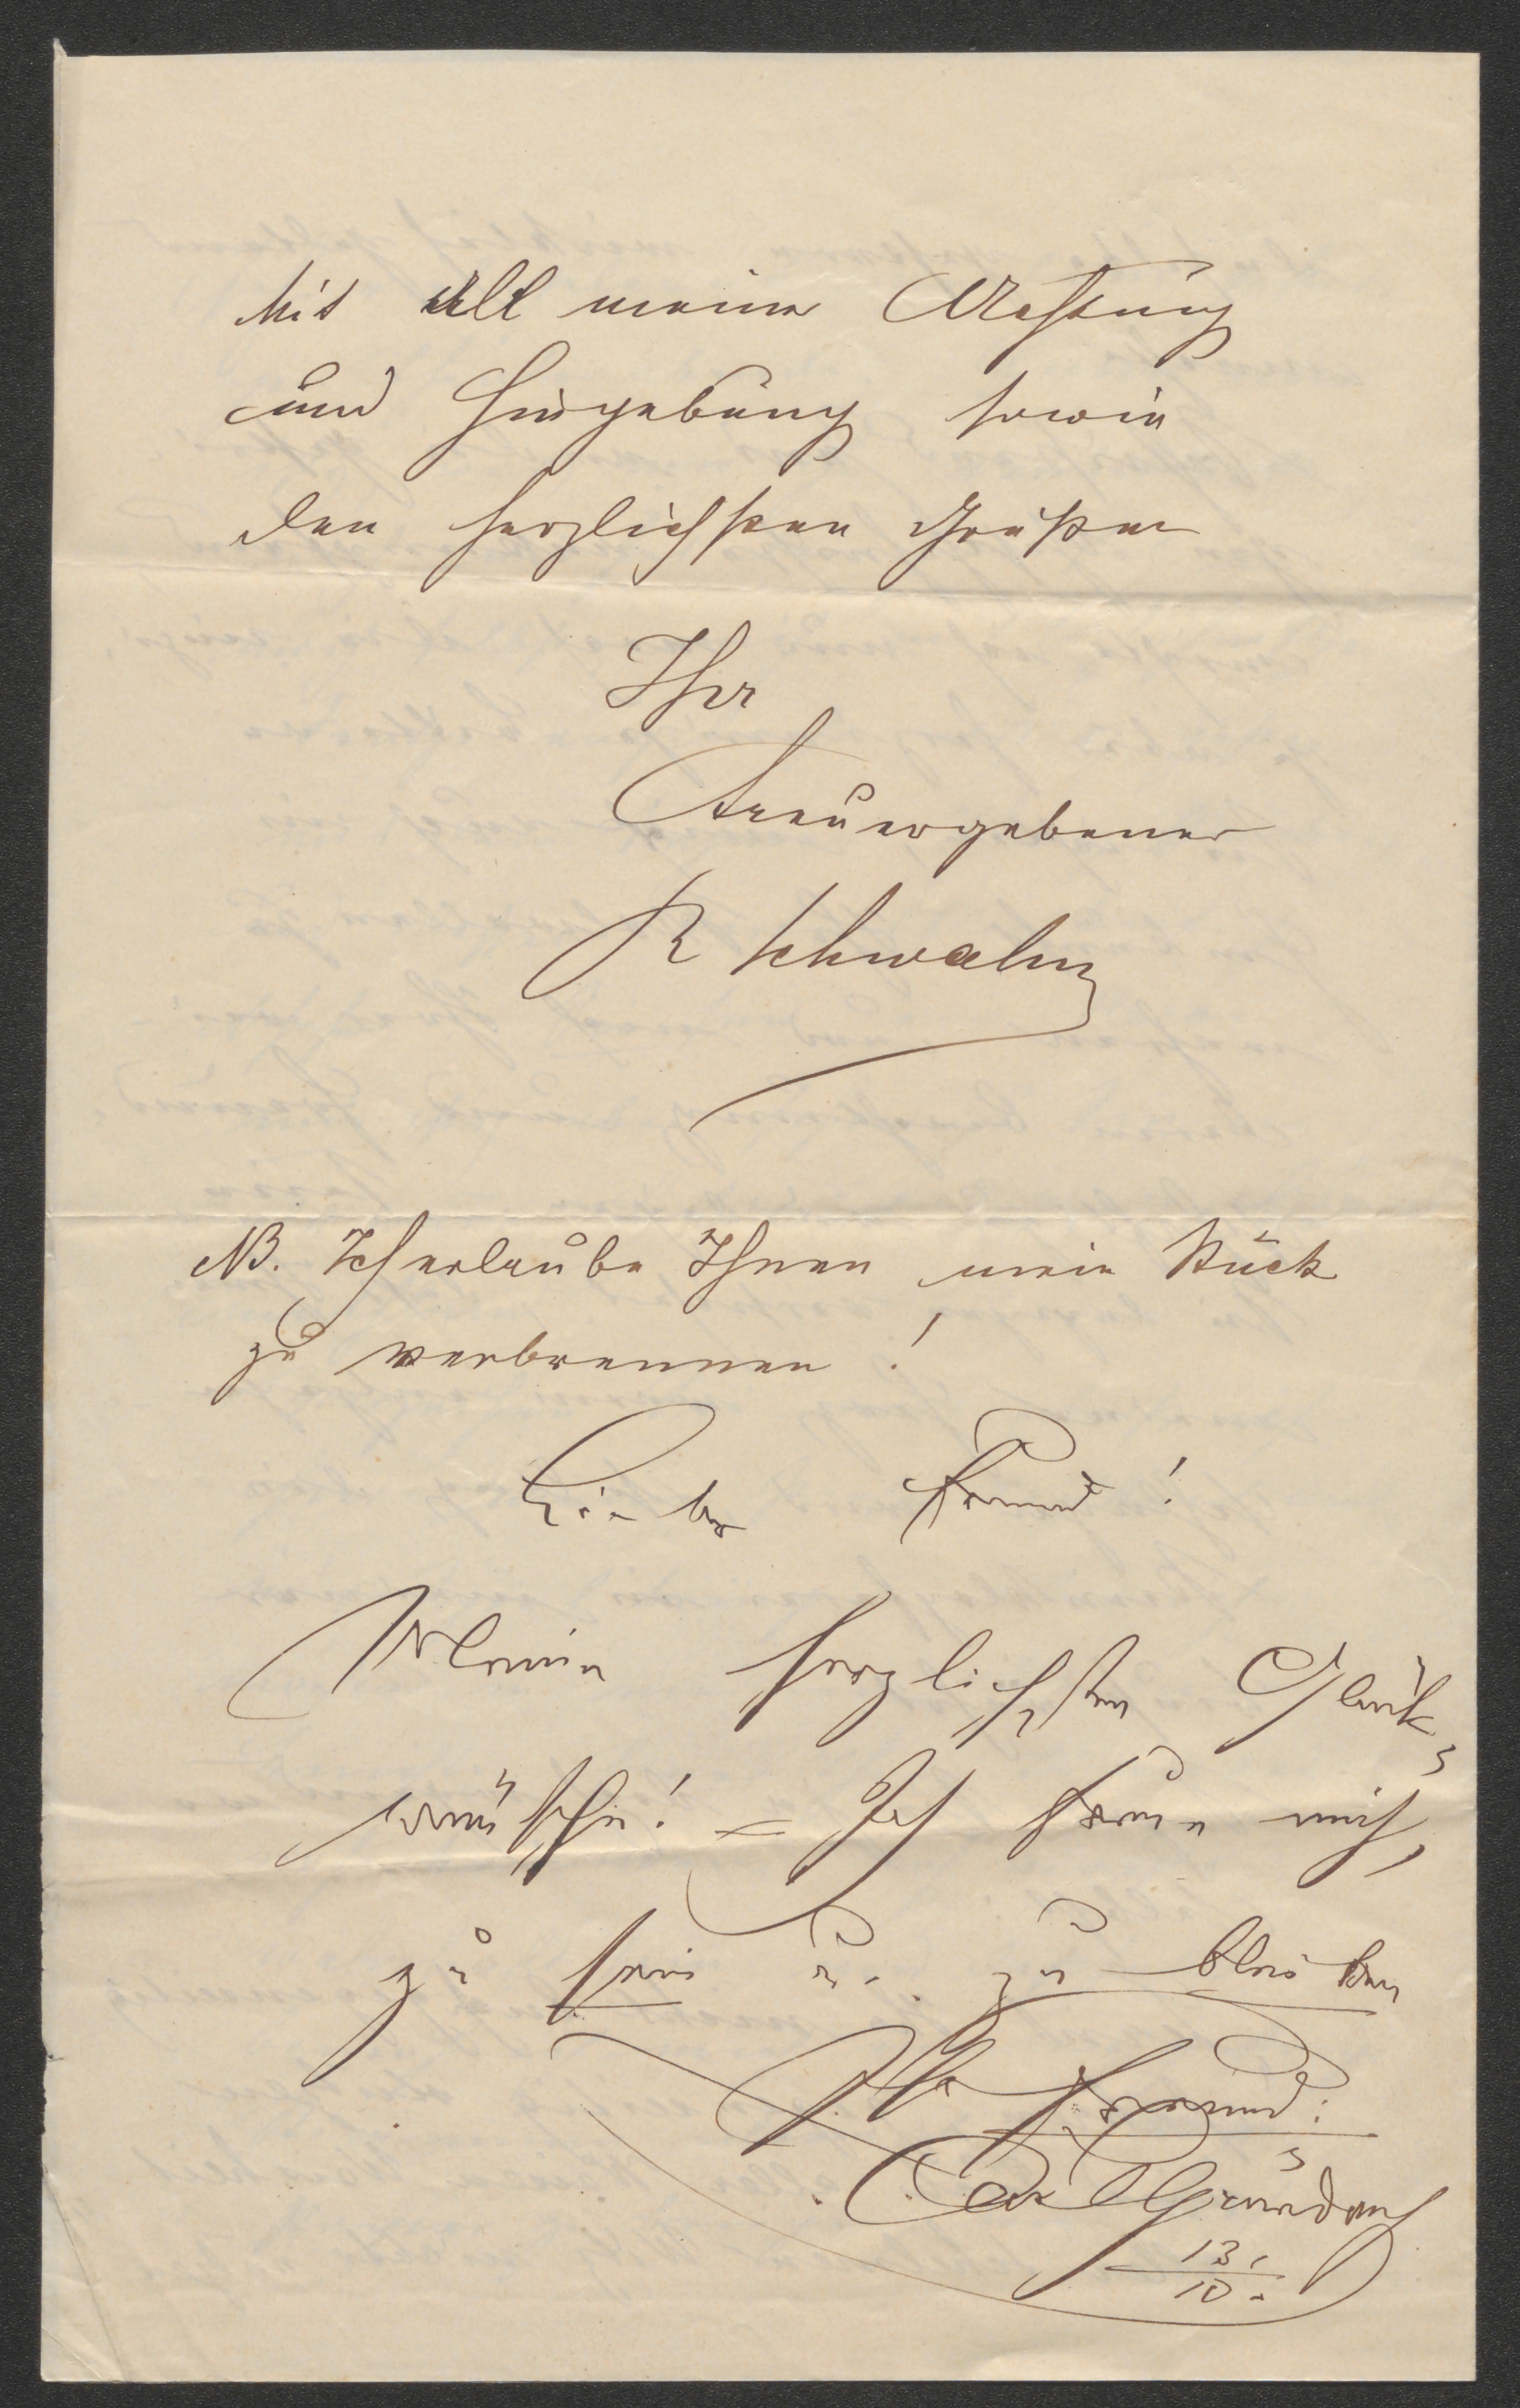 Mit all meiner Achtung
und Hingebung sowie
den herzlichsten Grüßen
Ihr
treuergebener
R Schwalm
NB. Ich erlaube Ihnen mein Stück
zu verbrennen!
Lieber Freund!
Meine herzlichsten Glück-
wünsche! – Ich freue mich,
zu sein u. zu bleiben
Ihr Freund:
Carl
13.
10.